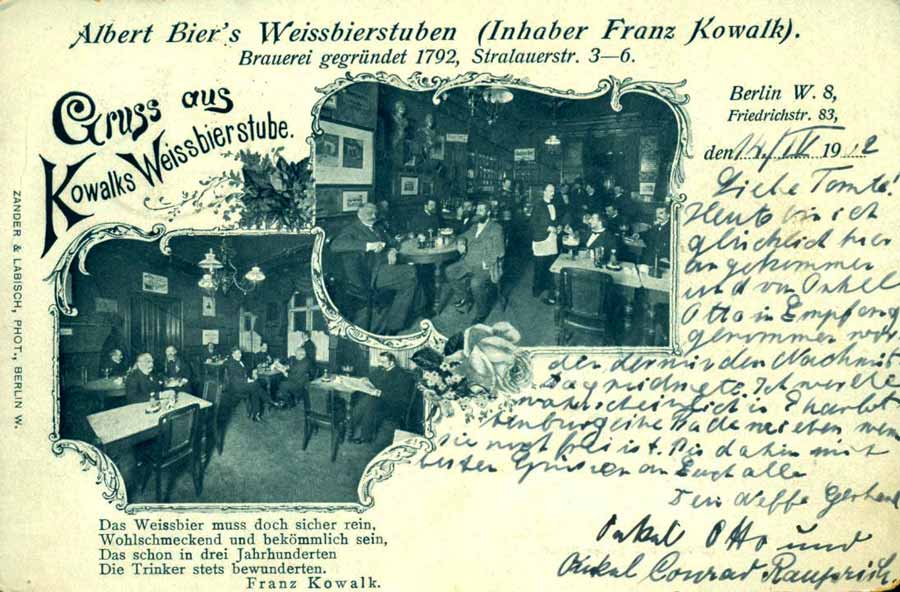 Albert Bier's Weissbierstuben (Inhaber Franz Kowalk).
Brauerei gegründet 1792, Stralauerstr. 3—6.
Gruss aus
Kowalks Weissbierstube.
Berlin W. 8,
Friedrichstr. 83,
den 19 2
Liebe Tante!
Heute bin ich
glücklich hier
angekommen
und von Onkel
Otto in Empfang
genommen wor
den der mir den Nachmit
tag Ich werde
wahrscheinlich in Charlot
tenburg eine nehmen wenn
sie noch frei ist. Bis dahin mit
besten Grüssen an Euch alle
Dein Neffe Gerhard
Onkel Otto und
Onkel Conrad
ZANDER & LABISCH, PHOT., BERLIN W.
Das Weissbier muss doch sicher rein,
Wohlschmeckend und bekömmlich sein,
Das schon in drei Jahrhunderten
Die Trinker stets bewunderten.
Franz Kowalk.